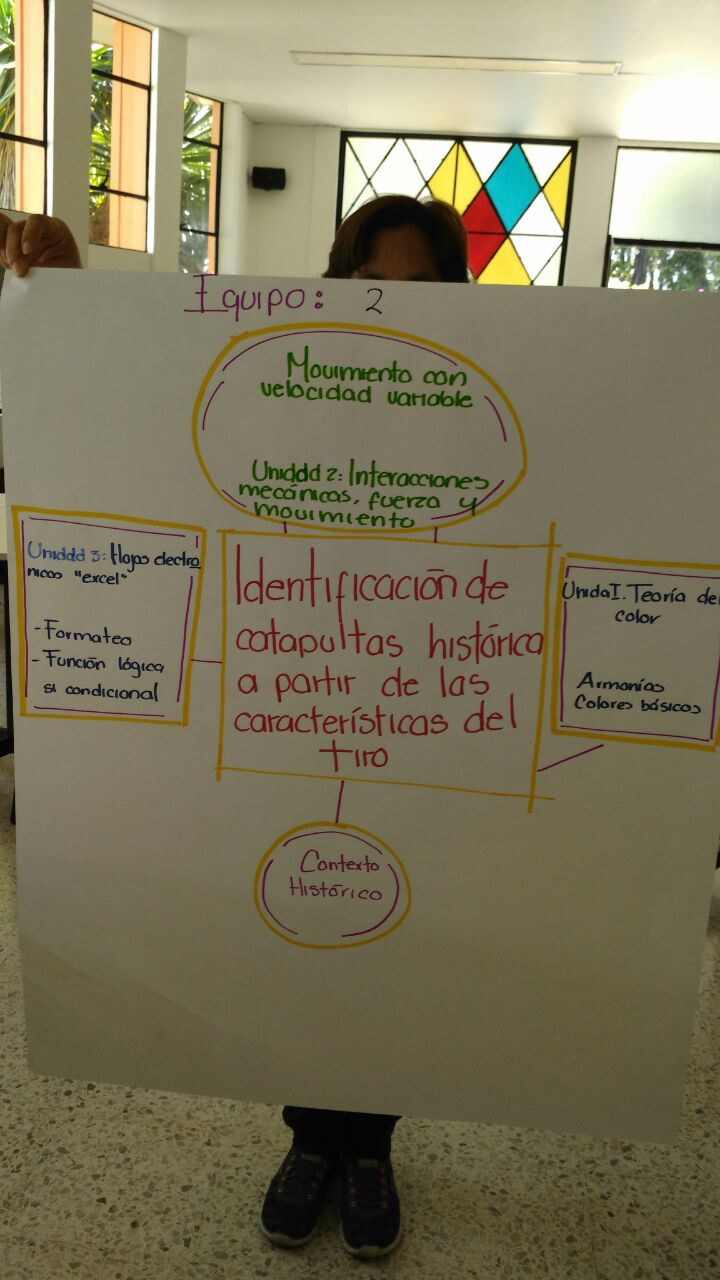 Equipo: 2
Movimiento con
velocidad variable
Unidad 2: Interacciones
mecánicas, fuerza y
movimiento
Unidad 3: Hojas electro
nicas "excel"
- Formateo
- Función lógica
si condicional
Identificación de
catapultas histórica
a partir de las
características del
tiro
Unida I. Teoría del
color
Armonías
Colores básicos
Contexto
Histórico